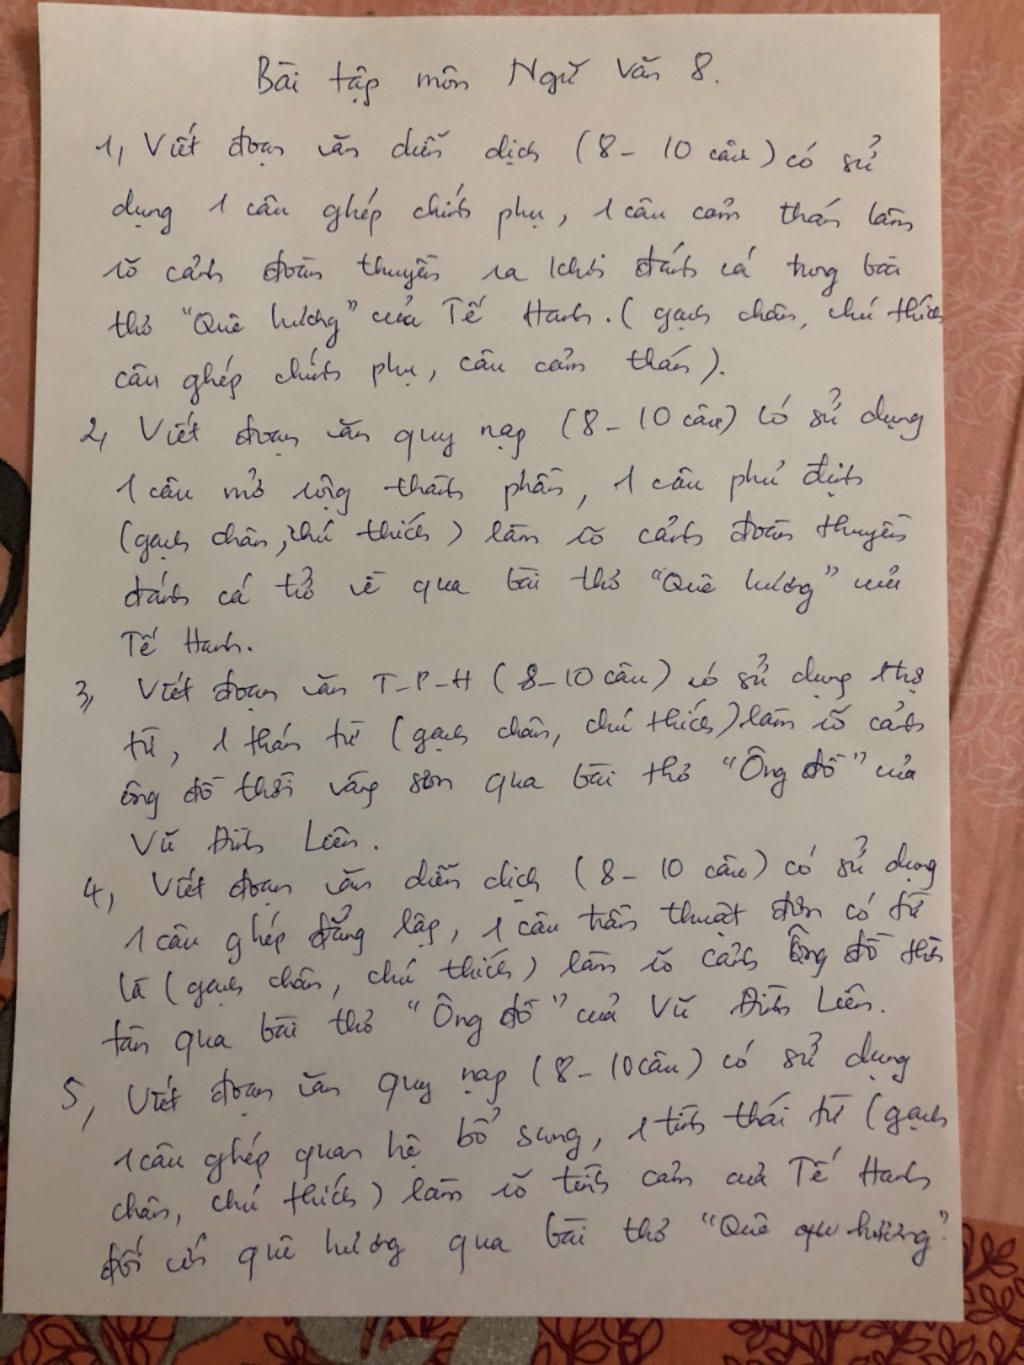 Bài tập môn Ngữ Văn 8.
1, Viết đoạn văn diễn dịch (8 - 10 câu) có sử
dụng 1 câu ghép chính phụ, 1 câu cảm thán làm
rõ cảnh đoàn thuyền ra khơi đánh cá trong bài
thơ "Quê hương" của Tế Hanh. (gạch chân, chú thích
câu ghép chính phụ, câu cảm thán).
2, Viết đoạn văn quy nạp (8 - 10 câu) có sử dụng
1 câu mở rộng thành phần, 1 câu phủ định
(gạch chân, chú thích) làm rõ cảnh đoàn thuyền
đánh cá trở về qua bài thơ "Quê hương" của
Tế Hanh.
3, Viết đoạn văn T-P-H (8 - 10 câu) có sử dụng trợ
từ, 1 thán từ (gạch chân, chú thích) làm rõ cảnh
ông đồ thời vàng son qua bài thơ "Ông đồ" của
Vũ Đình Liên.
4, Viết đoạn văn diễn dịch (8 - 10 câu) có sử dụng
1 câu ghép đẳng lập, 1 câu trần thuật đơn có từ
là (gạch chân, chú thích) làm rõ cảnh Ông đồ thời
tàn qua bài thơ "Ông đồ" của Vũ Đình Liên.
5, Viết đoạn văn quy nạp (8 - 10 câu) có sử dụng
1 câu ghép quan hệ bổ sung, 1 tình thái từ (gạch
chân, chú thích) làm rõ tình cảm của Tế Hanh
đối với quê hương qua bài thơ "Quê hương"